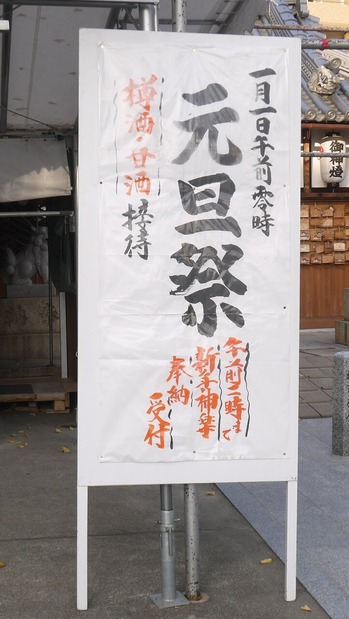 一月一日午前零時
元旦祭
樽酒・甘酒
接待
午前二時まで
新春神楽
奉納
受付
御神燈